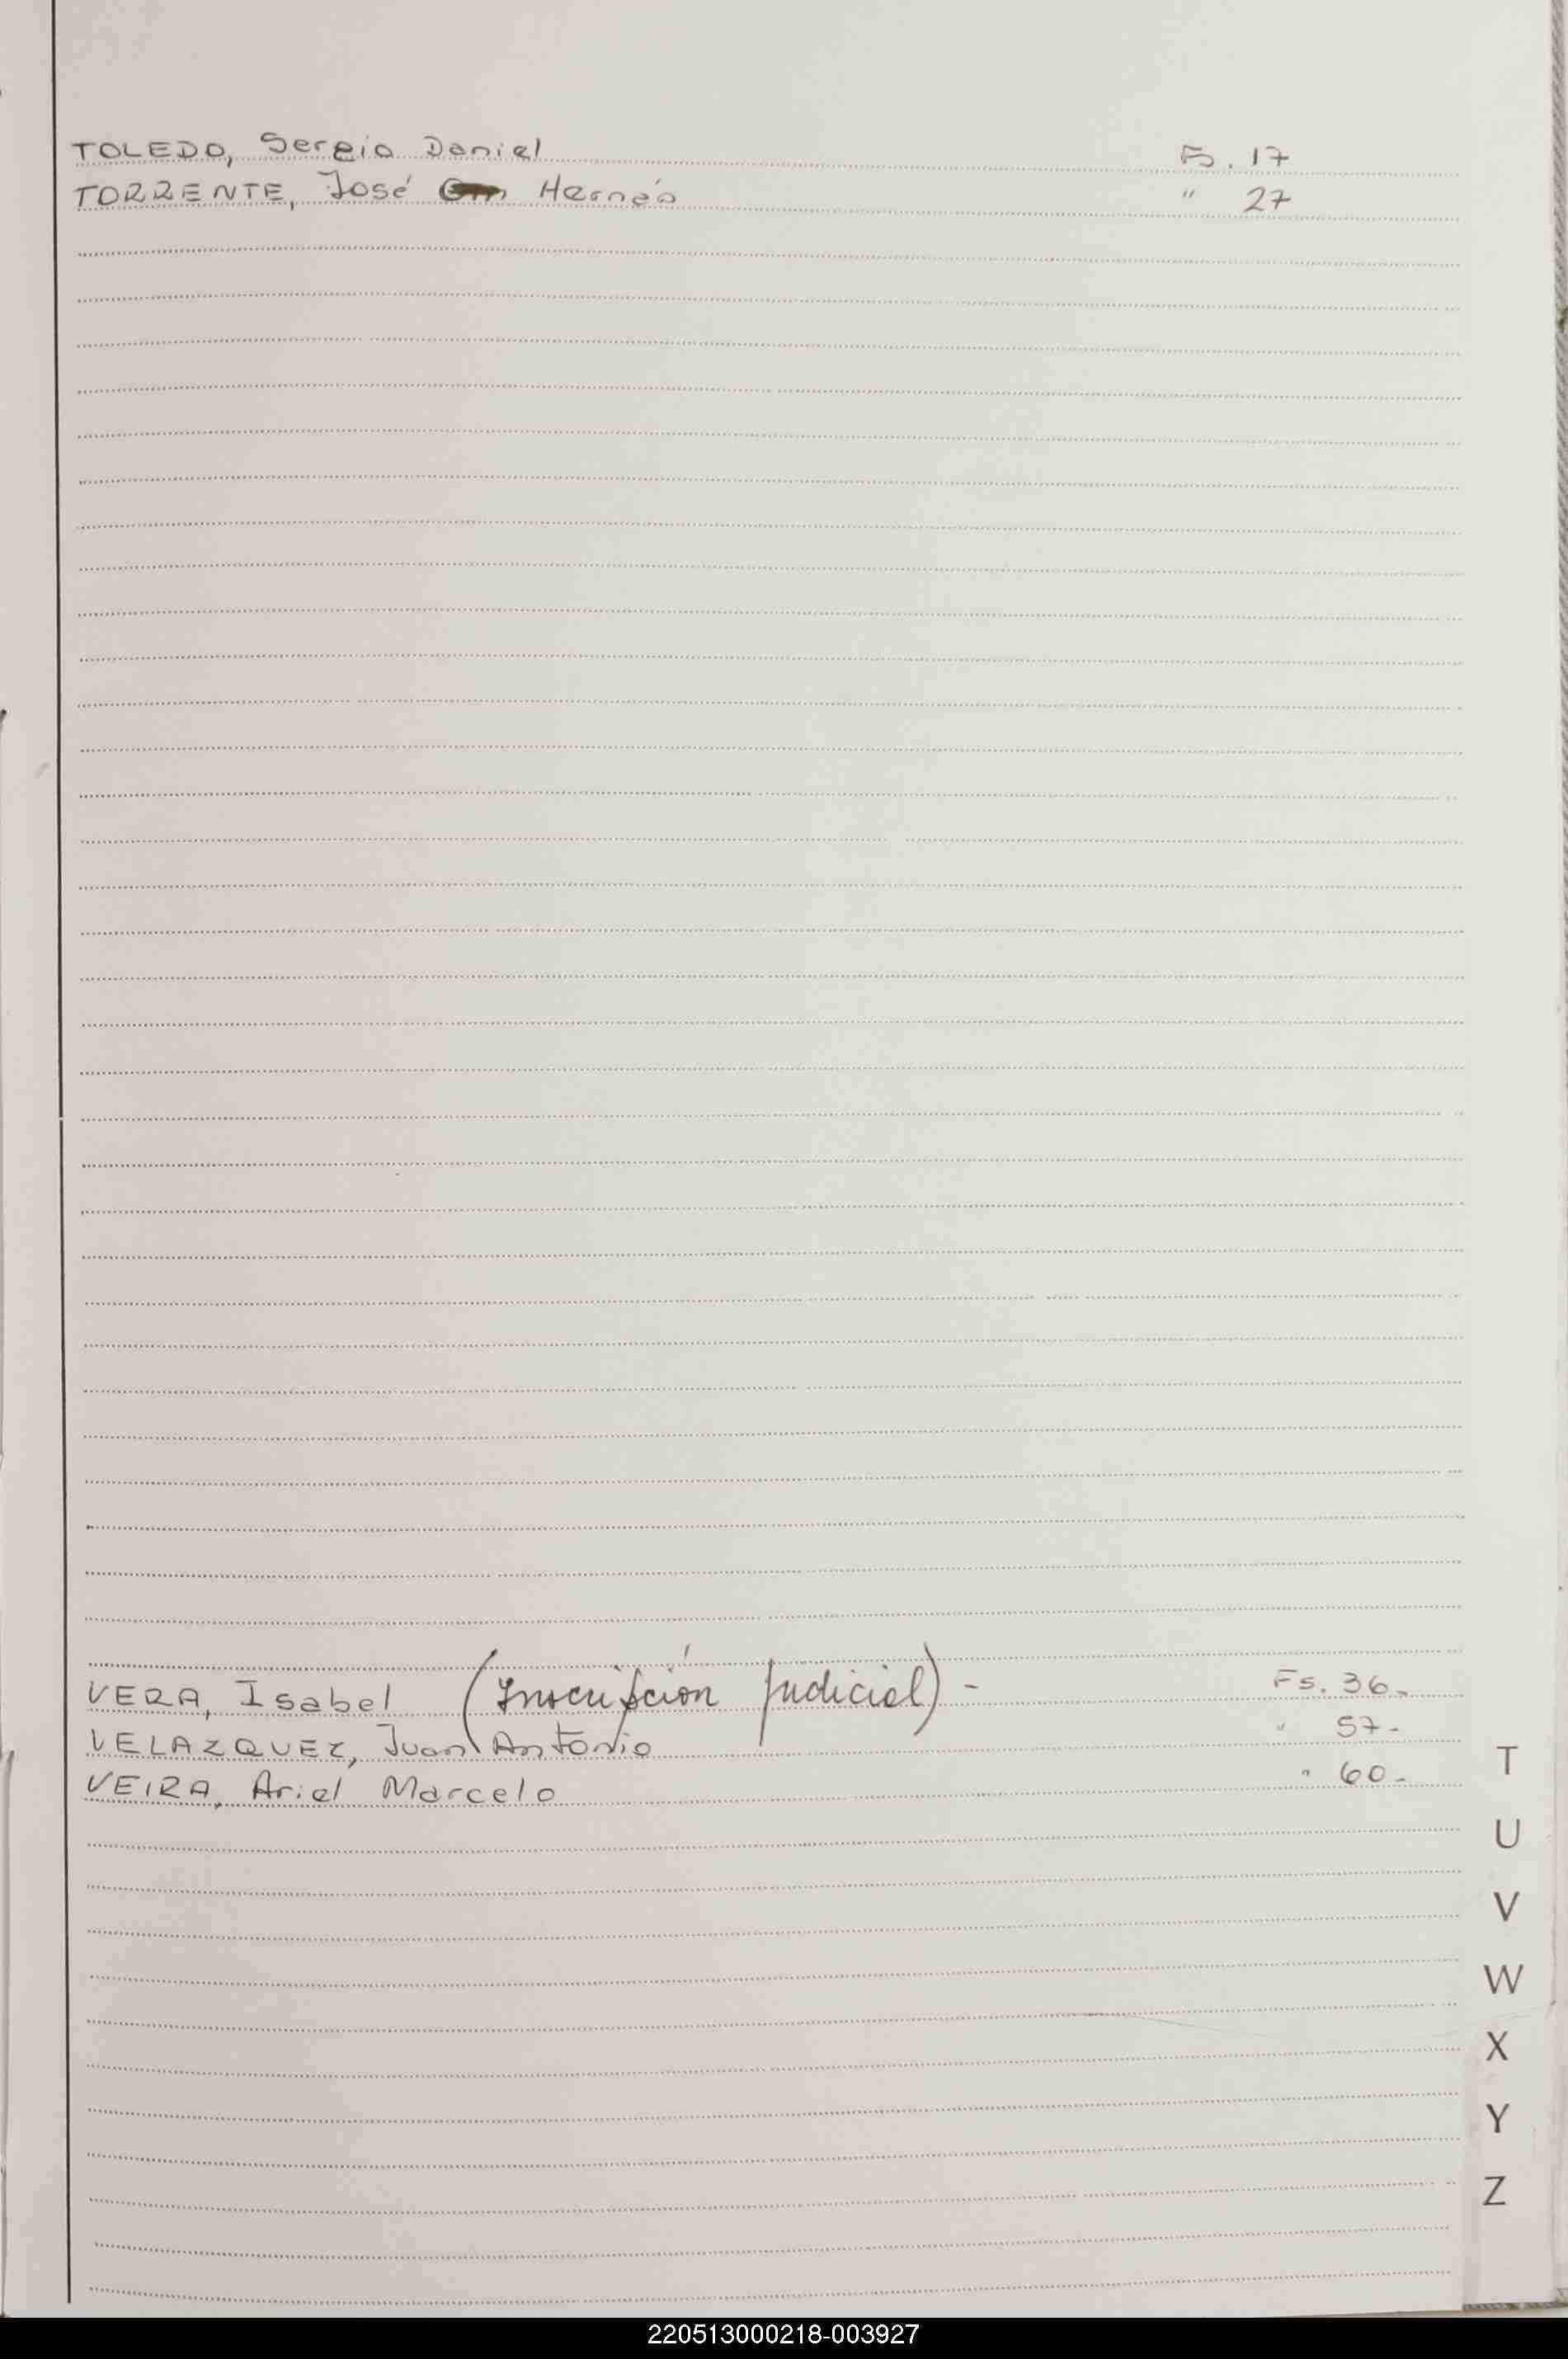 TOLEDO, Sergio Daniel Fs. 17
TORRENTE, José Hernán " 27
VERA, Isabel (Inscripción Judicial) - Fs. 36-
VELAZQUEZ, Juan Antonio " 57-
VEIRA, Ariel Marcelo " 60-
T
U
V
W
X
Y
Z
220513000218-003927